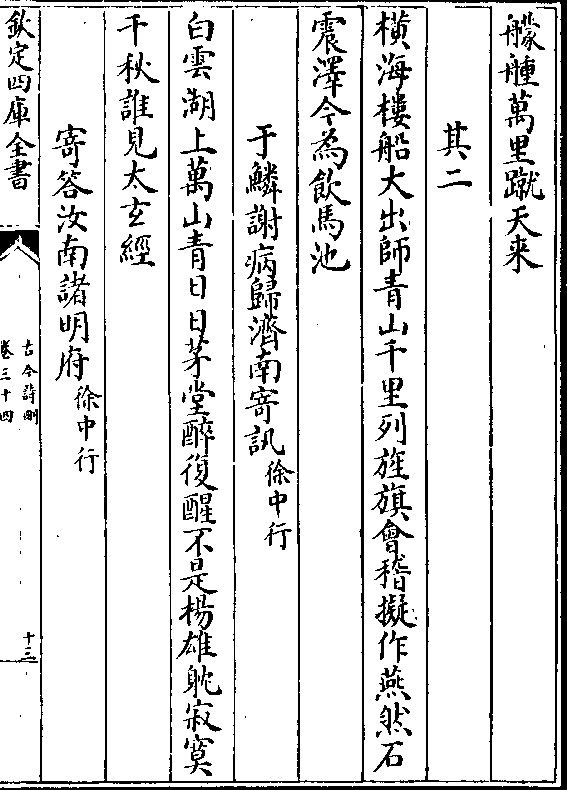 艨艟萬里蹴天来
其二
横海樓船大出師青山千里列旌旗會稽擬作燕然石
震澤今為飲馬池
于鱗謝病歸濟南寄訊徐中行
白雲湖上萬山青日日茅堂醉復醒不是楊雄躭寂寞
千秋誰見太玄經
寄答汝南諸明府徐中行
欽定四庫全書
古今詩刪
卷三十四
十三